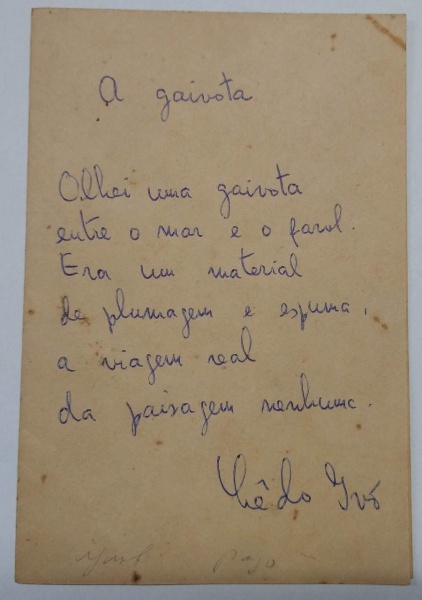 A gaivota
Olhei uma gaivota
entre o mar e o farol.
Era um material
de plumagem e espuma,
a viagem real
da paisagem nenhuma.
Lêdo Ivo
pago